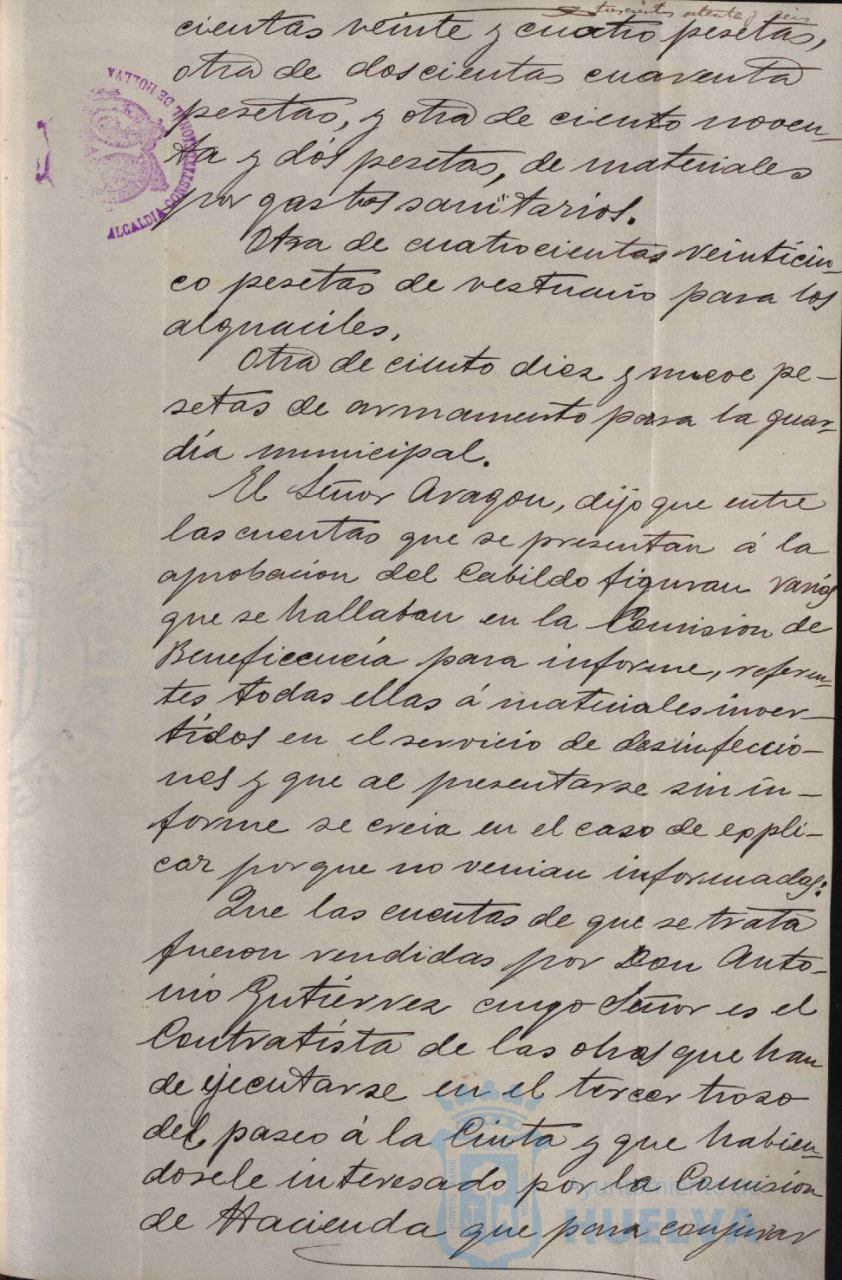 trescientos setenta y seis
cientas veinte y cuatro pesetas,
otra de doscientas cuarenta
pesetas, y otra de ciento noven-
ta y dos pesetas, de materiales
por gastos sanitarios.
Otra de cuatrocientas veinticin-
co pesetas de vestuario para los
alguaciles.
Otra de ciento diez y nueve pe-
setas de armamento para la guar-
dia municipal.
El Señor Aragon, dijo que entre
las cuentas que se presentan á la
aprobacion del Cabildo figuran varias
que se hallaban en la Comision de
Beneficencia para informe, referen-
tes todas ellas á materiales inver-
tidos en el servicio de desinfeccio-
nes y que al presentarse sin in-
forme se creia en el caso de expli-
car porque no venian informadas:
Que las cuentas de que se trata
fueron rendidas por Don Anto-
nio Gutiérrez cuyo Señor es el
Contratista de las obras que han
de ejecutarse en el tercer trozo
del paseo á la Cinta y que habien-
dosele interesado por la Comision
de Hacienda que para conjurar
ALCALDIA CONSTITUCIONAL DE HUELVA
Ayuntamiento de
HUELVA